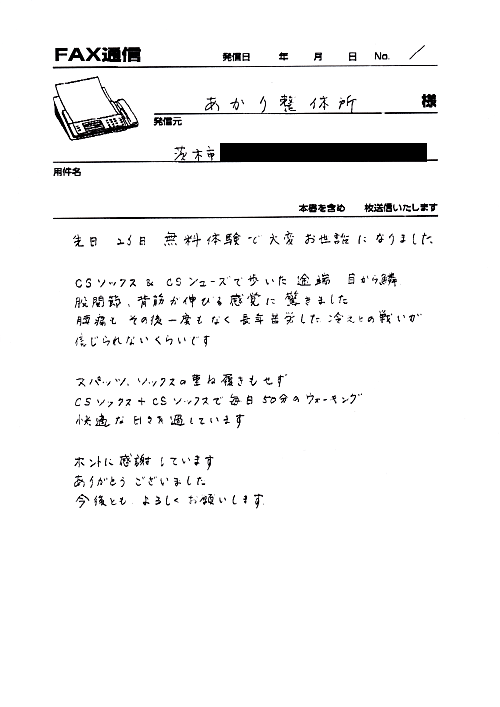 FAX通信
発信日 年 月 日 No. /
あかり整体所 様
発信元
茨木市
用件名
本書を含め 枚送信いたします
先日 23日 無料体験で大変お世話になりました
CSソックス & CSシューズで歩いた途端 目から鱗
股関節、背筋が伸びる感覚に驚きました
腰痛も その後一度もなく 長年苦労した冷えとの戦いが
信じられないくらいです
スパッツ、ソックスの重ね履きもせず
CSソックス + CSソックスで毎日50分のウォーキング
快適な日々を過しています
ホントに感謝しています
ありがとうございました
今後とも よろしくお願いします